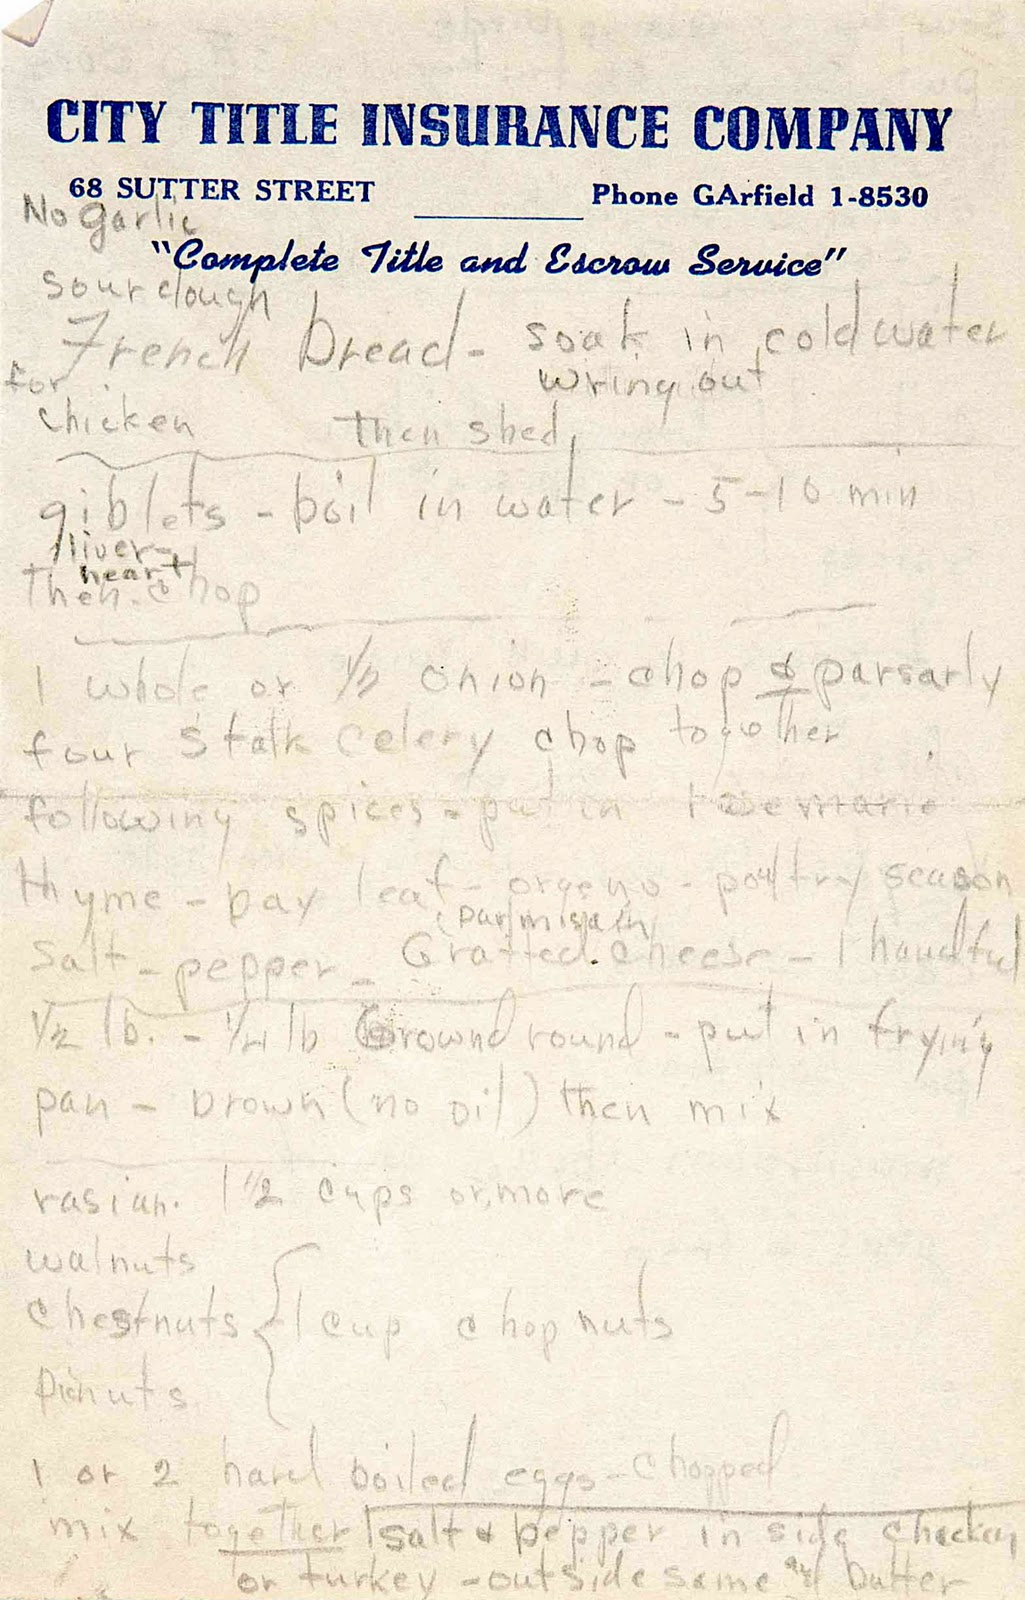 CITY TITLE INSURANCE COMPANY
68 SUTTER STREET Phone GArfield 1-8530
No garlic
"Complete Title and Escrow Service"
sourdough
French bread - soak in cold water
for wring out
chicken then shed
giblets - boil in water - 5-10 min
liver-
heart
then chop
1 whole or 1/2 onion - chop & parsarly
four stalk celery chop together
following spices - put in rosemarie
thyme - bay leaf - orgeno - poultry season
(parmisain)
salt - pepper - Gratted cheese - 1 handful
1/2 lb. - 1/4 lb Ground round - put in frying
pan - brown (no oil) then mix
rasian. 1 1/2 cups or more
walnuts
chestnuts { 1 cup chop nuts
pinuts
1 or 2 hard boiled eggs - chopped
mix together salt & pepper in side chicken
or turkey - outside same and butter